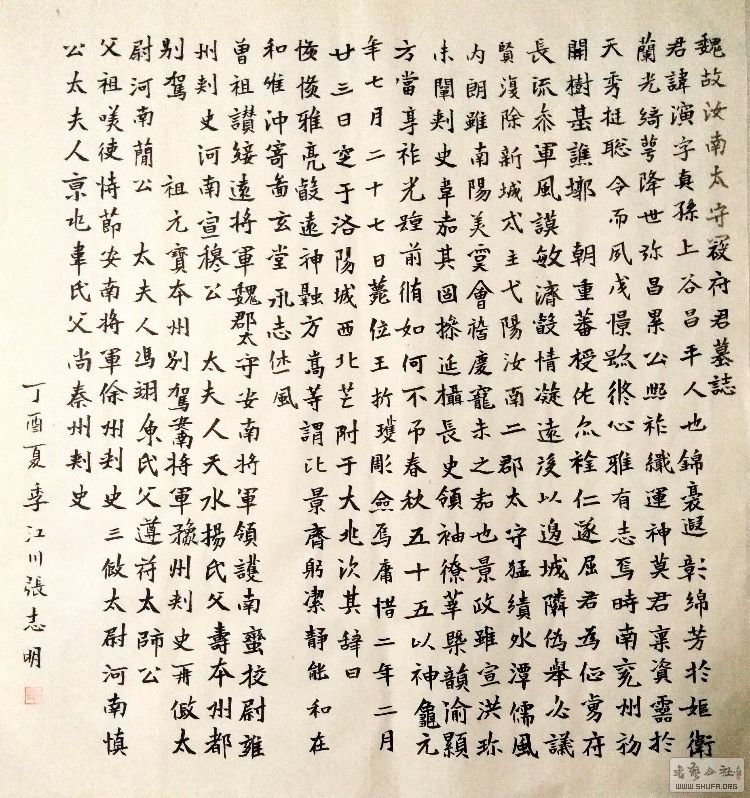 魏故汝南太守寇府君墓誌
君諱演字真孫上谷昌平人也錦裹遐彰綿芳於姬衛
蘭光綺萼降世弥昌累公熙祚纖運神莫君稟資靈於
天秀挺聡令而夙茂憬跡終心雅有志焉時南兖州初
開樹基譙鄴朝重蕃授佐尒栓仁遂屈君為征虜府
長流叅軍風謨敏濟毃情凝遠後以邊城隣偽舉必議
賢復除新城戍主弋陽汝南二郡太守猛績水潭儒風
内朗雖南陽美㝠會稽慶寵未之加也景政雖宣洪珎
未闡刾史韋加其固操延攝長史領袖僚莘槩韻渝顯
方當享祚光踵前脩如何不吊春秋五十五以神龜元
年七月二十七日薨位王折瓊彫僉焉庸惜二年二月
廿三日窆于洛陽城西北芒附于大兆次其辞曰
悛悛雅亮毃遠神融方嵩等謂比景齊躬潔靜能和在
和惟沖寄啚玄堂永志休風
曾祖讃綏遠將軍魏郡太守安南將軍領護南蠻校尉雍
州刾史河南宣穆公 太夫人天水楊氏父壽本州都
別駕 祖元寶本州別駕安南將軍豫州刾史再儆太
尉河南簡公 太夫人馮翊魚氏父遵符太師公
父祖嘆使恃節安南將軍徐州刾史三儆太尉河南慎
公太夫人京兆韋氏父尚秦州刾史
丁酉夏季江川張志明
書藝公社
WWW.SHUFA.ORG